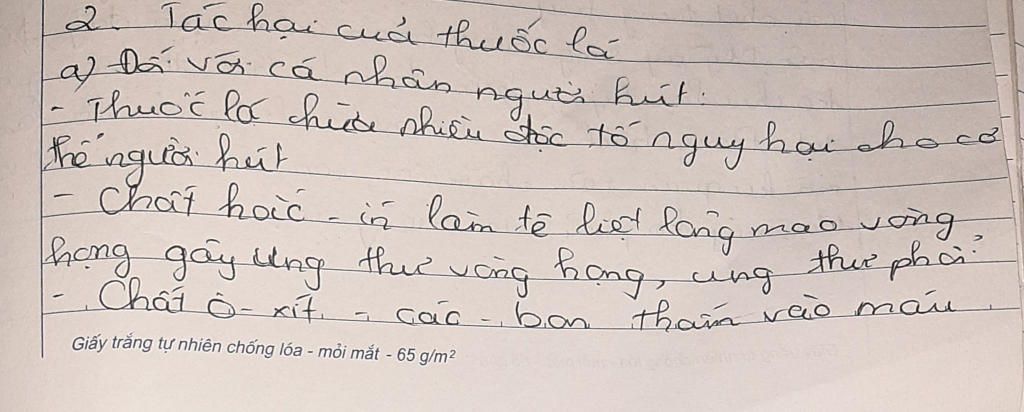 2. Tác hại cuả thuốc lá
a) Đối với cá nhân người hút:
- Thuốc lá chứa nhiều độc tố nguy hại cho cơ
thể người hút
- Chất hắc - ín làm tê liệt lông mao vòng
họng gây ung thư vòng họng, ung thư phổi.
- Chất ô - xít - các - bon thấm vào máu
Giấy trắng tự nhiên chống lóa - mỏi mắt - 65 g/m²